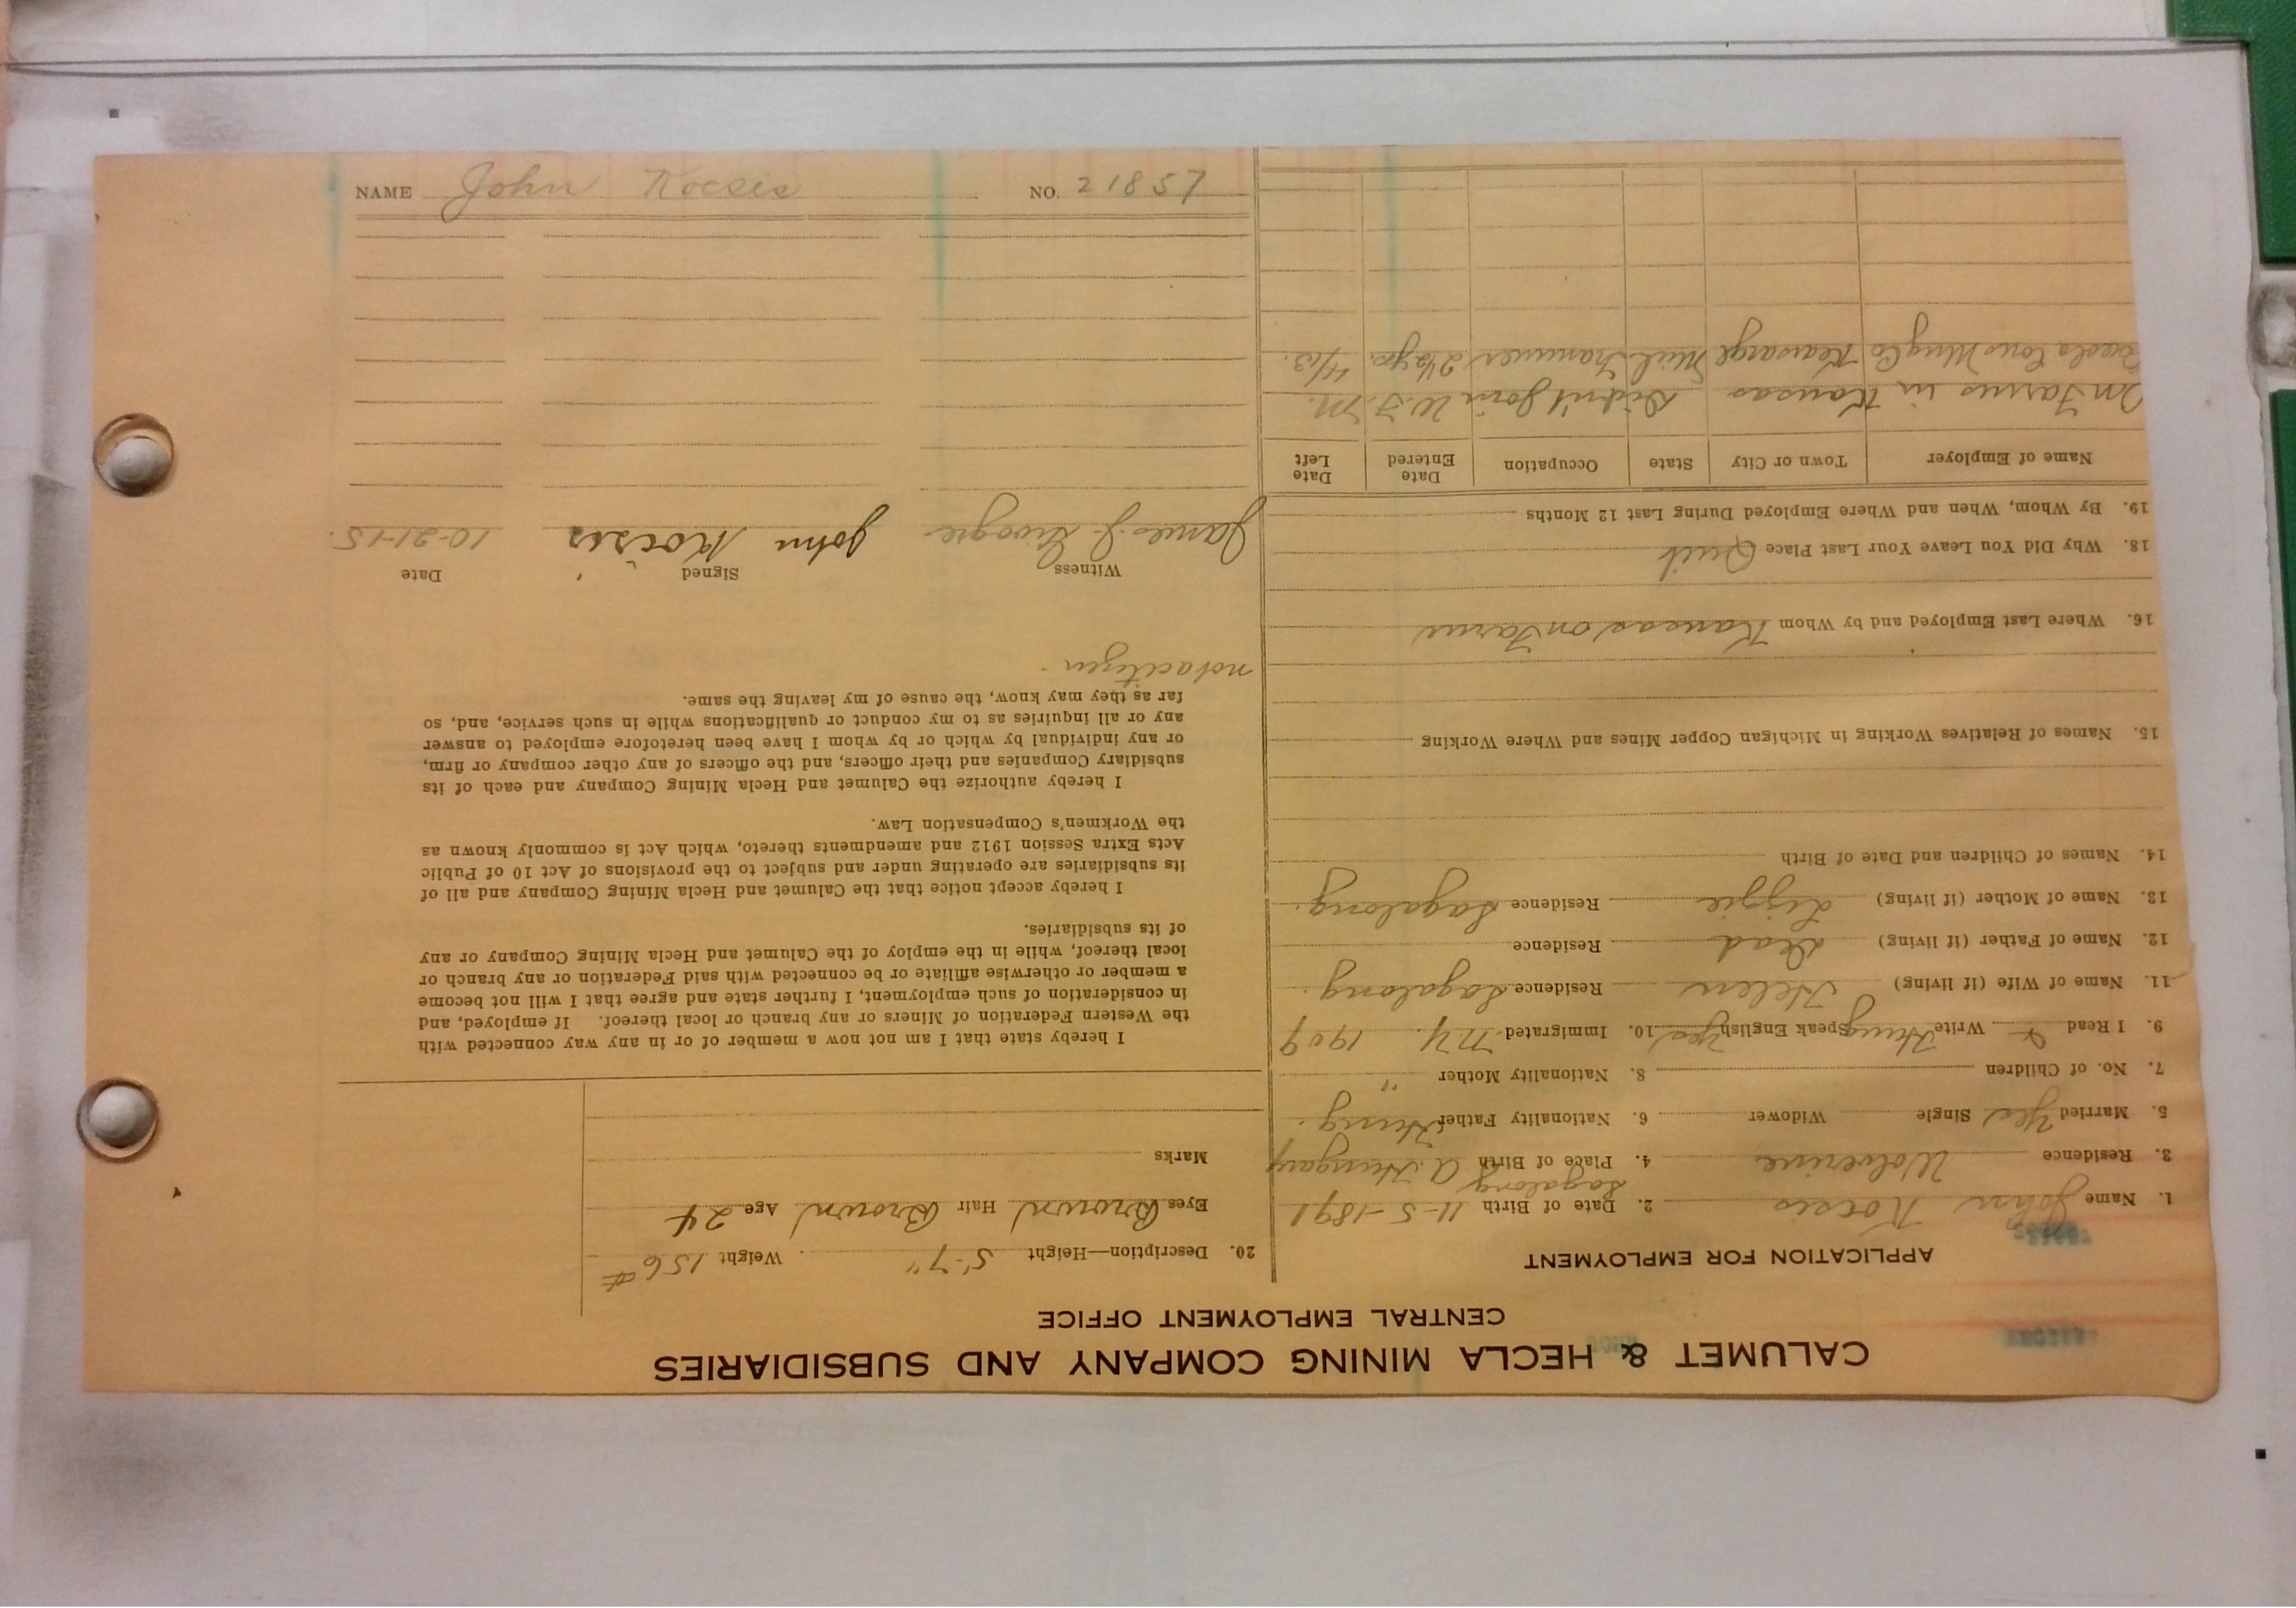 CALUMET & HECLA MINING COMPANY AND SUBSIDIARIES
CENTRAL EMPLOYMENT OFFICE
APPLICATION FOR EMPLOYMENT
1. Name John Kocsis 2. Date of Birth 11-5-1891
Sagalong
3. Residence Wolverine 4. Place of Birth A. Hungary
5. Married Yes Single Widower 6. Nationality Father Hung.
7. No. of Children 8. Nationality Mother "
9. I Read & Write Hung Speak English Yes 10. Immigrated N.Y. 1909
11. Name of Wife (if living) Helen Residence Sagalong.
12. Name of Father (if living) Dead Residence
13. Name of Mother (if living) Lizzie Residence Sagalong.
14. Names of Children and Date of Birth
15. Names of Relatives Working in Michigan Copper Mines and Where Working
16. Where Last Employed and by Whom Kansas on Farm
18. Why Did You Leave Your Last Place Quit
19. By Whom, When and Where Employed During Last 12 Months
Name of Employer Town or City State Occupation Date Entered Date Left
On Farms in Kansas Didn't Join W. F. M.
Cons Mng Co Keawarge Mich Trammer 2½ yrs. 4/13.
20. Description—Height 5'-7" Weight 156#
Eyes Brown Hair Brown Age 24
Marks
I hereby state that I am not now a member of or in any way connected with
the Western Federation of Miners or any branch or local thereof. If employed, and
in consideration of such employment, I further state and agree that I will not become
a member or otherwise affiliate or be connected with said Federation or any branch or
local thereof, while in the employ of the Calumet and Hecla Mining Company or any
of its subsidiaries.
I hereby accept notice that the Calumet and Hecla Mining Company and all of
its subsidiaries are operating under and subject to the provisions of Act 10 of Public
Acts Extra Session 1912 and amendments thereto, which Act is commonly known as
the Workmen's Compensation Law.
I hereby authorize the Calumet and Hecla Mining Company and each of its
subsidiary Companies and their officers, and the officers of any other company or firm,
or any individual by which or by whom I have been heretofore employed to answer
any or all inquiries as to my conduct or qualifications while in such service, and, so
far as they may know, the cause of my leaving the same.
not a citizen.
Witness Signed Date
James J. John Kocsis 10-21-15.
NAME John Kocsis NO. 21857